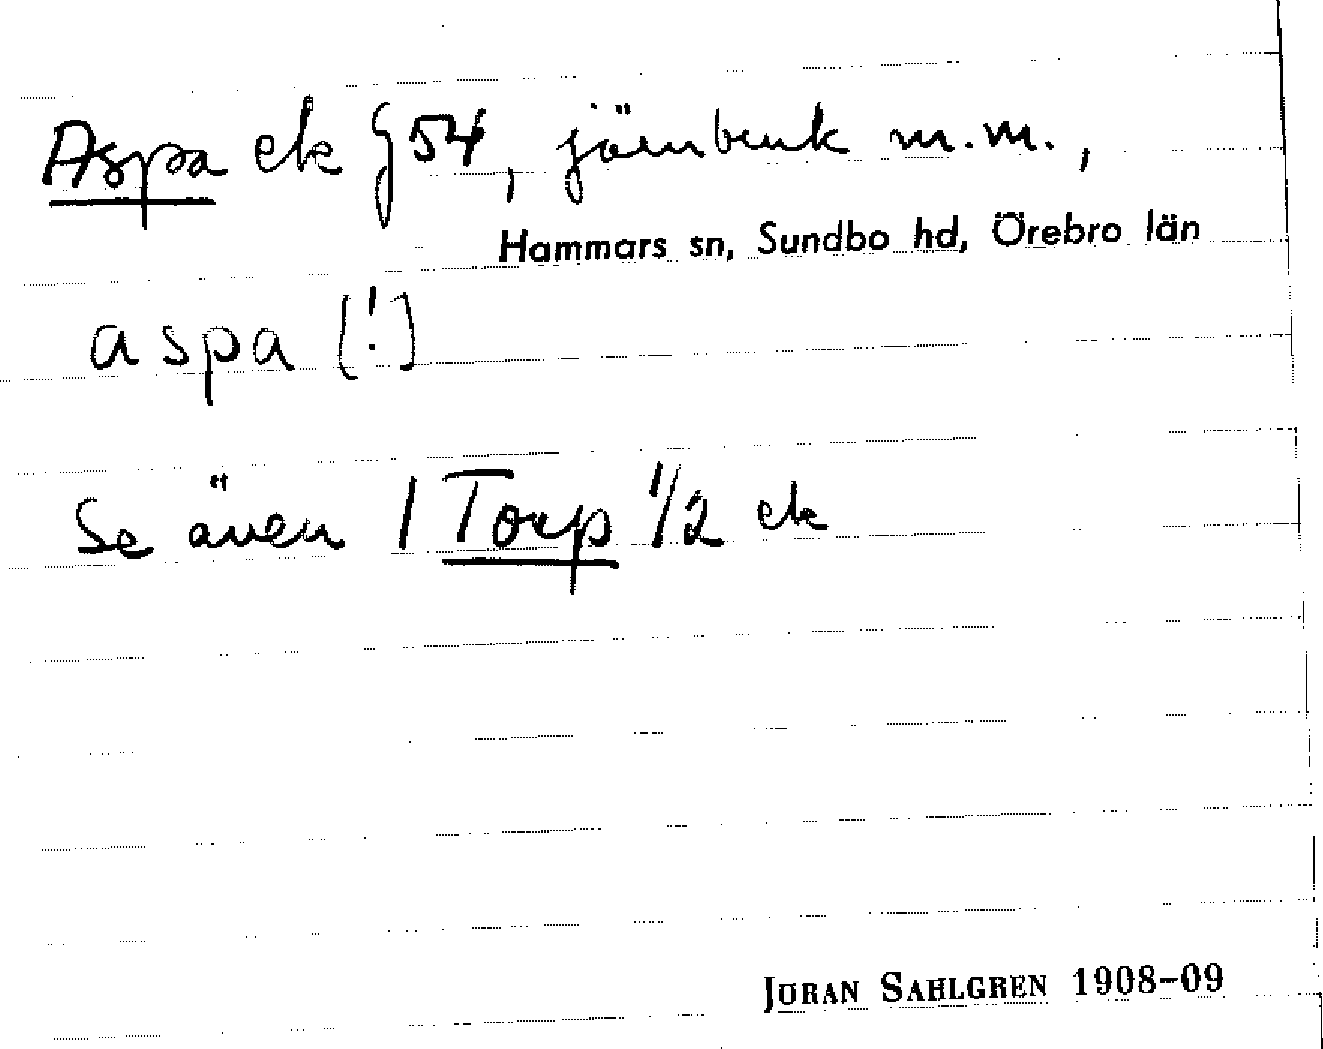 Aspa ek § 54, järnbruk m.m.,
Hammars sn, Sundbo hd, Örebro län
aspa [!]
Se även 1 Torp 1/2 ek
JÖRAN SAHLGREN 1908-09